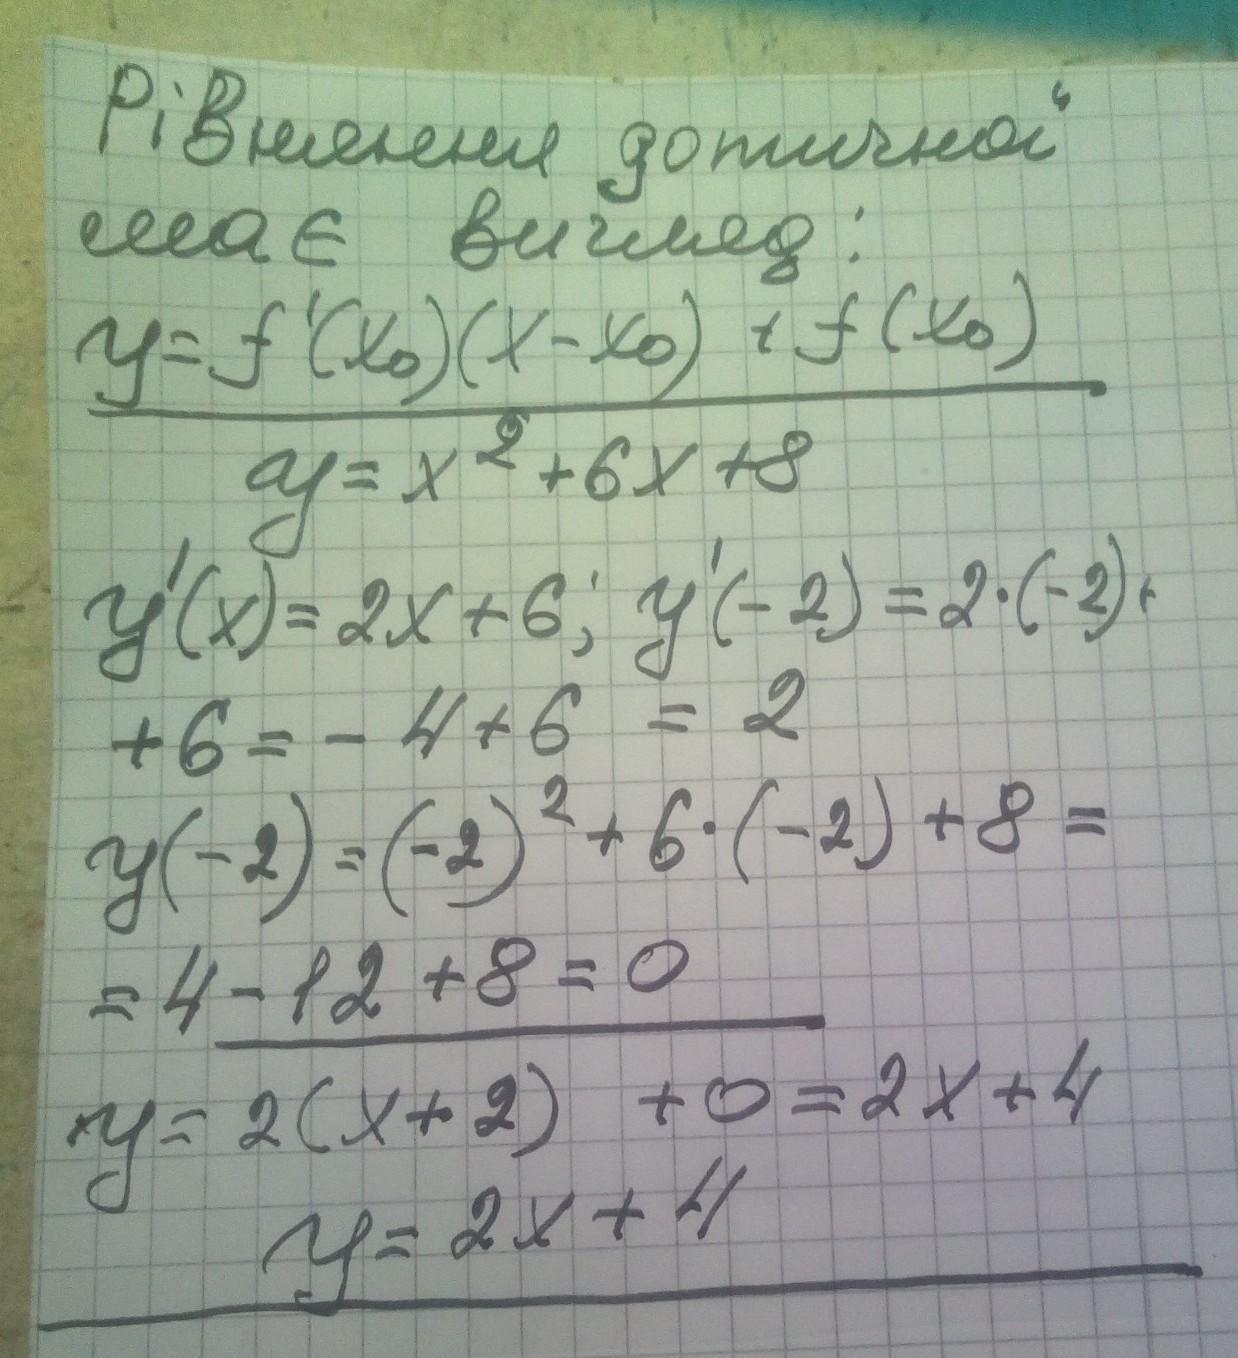 Рівняння дотичної
має вигляд:
y = f'(x₀)(x - x₀) + f(x₀)
y = x² + 6x + 8
y'(x) = 2x + 6; y'(-2) = 2·(-2) +
+ 6 = - 4 + 6 = 2
y(-2) = (-2)² + 6·(-2) + 8 =
= 4 - 12 + 8 = 0
y = 2(x + 2) + 0 = 2x + 4
y = 2x + 4